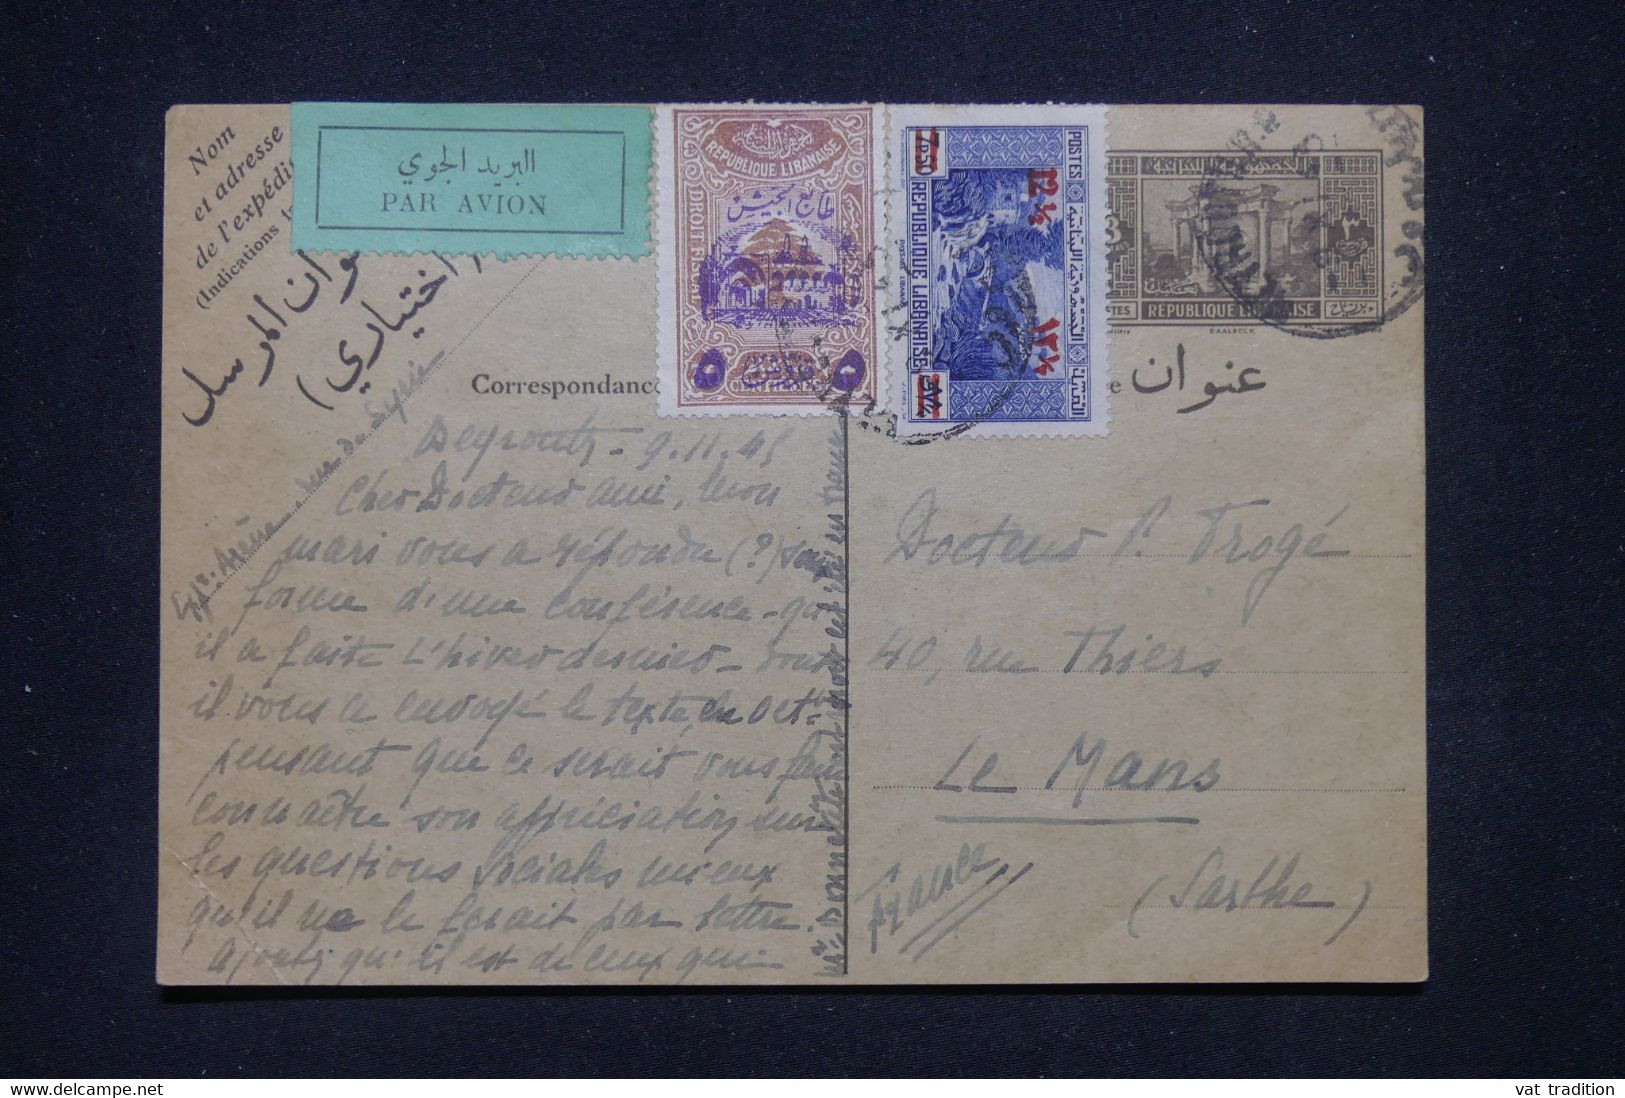 Nom
et adresse
de l'expédi
(Indications
عنوان المرسل
(اختياري)
البريد الجوي
PAR AVION
RÉPUBLIQUE LIBANAISE
DROIT FISCAL
طابع الجيش
٥ ٥
POSTES
7P.50
12½
RÉPUBLIQUE LIBANAISE
١٢٫½
3
POSTES
RÉPUBLIQUE LIBANAISE
BAALBECK
Correspondance
عنوان
Beyrouth - 9.11.45
Cher Docteur ami, Mon
mari vous a répondu (?) sous
forme d'une conférence - qu'
il a faite l'hiver dernier - dont
il vous a envoyé le texte, en oct
pensant que ce serait vous faire
connaître son appréciation sur
les questions sociales mieux
qu'il ne le ferait par lettre.
Ajoutez qu'il est de ceux qui
rue de Syrie
Docteur P. Trogé
40, rue Thiers
Le Mans
(Sarthe)
France
vat tradition